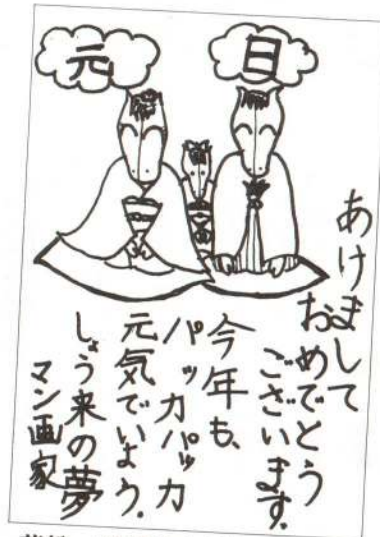 元日
あけまして
おめでとう
ございます。
今年も、
パッカパッカ
元気でいよう。
しょう来の夢
マン画家